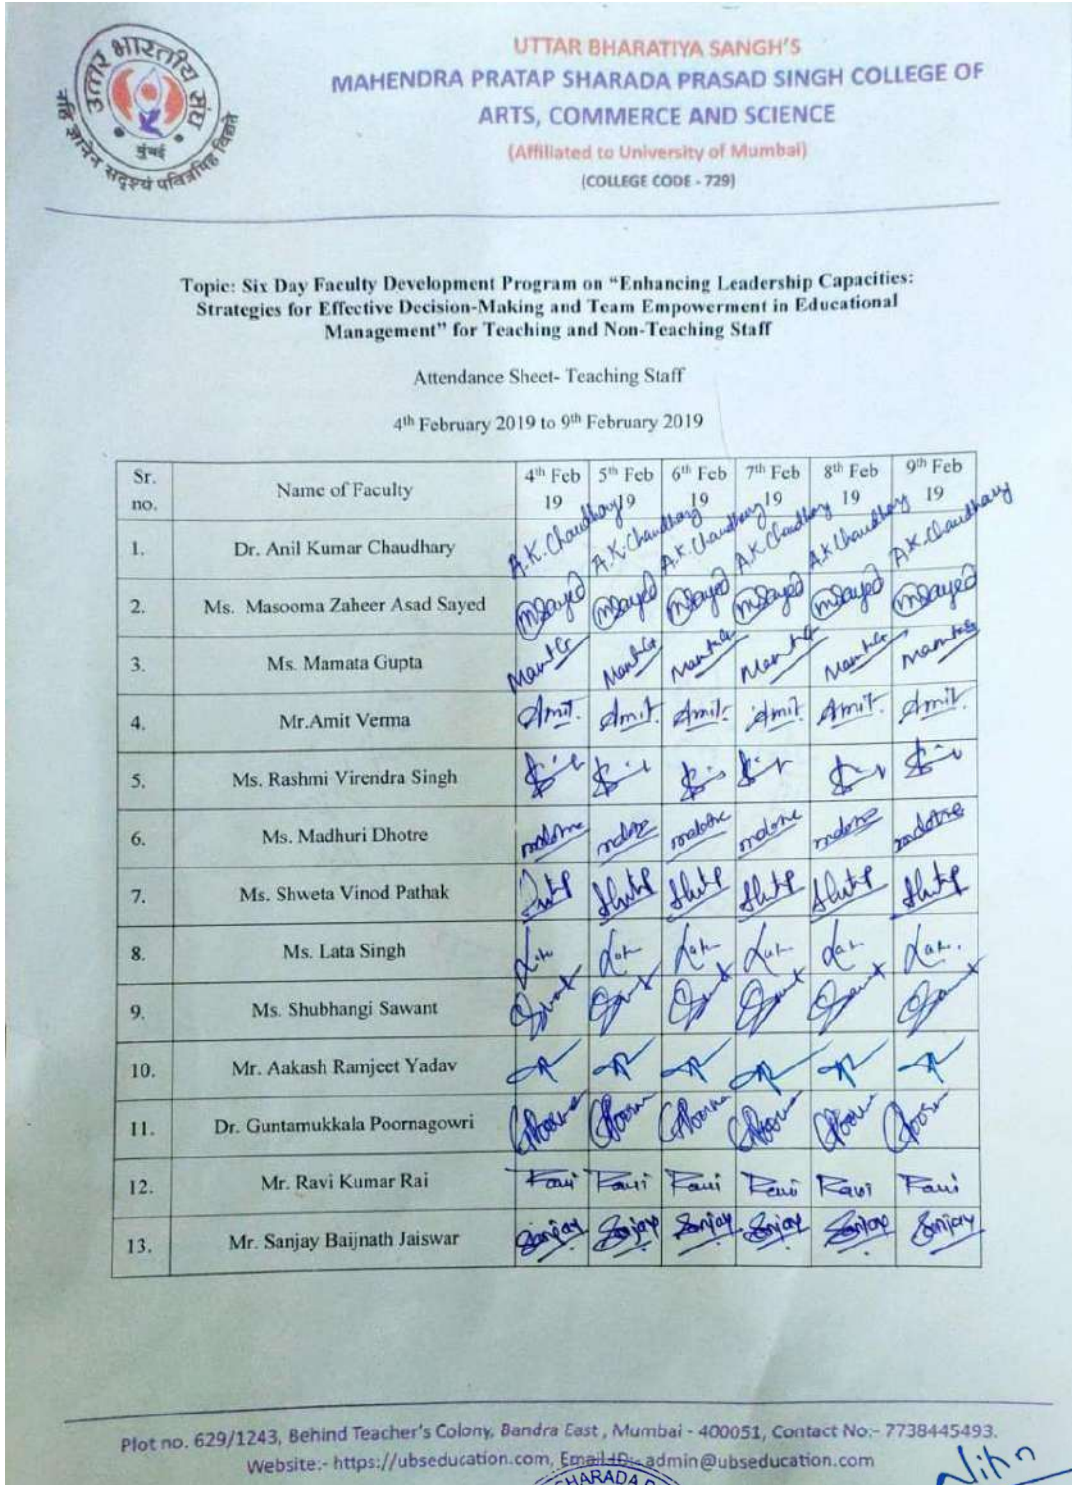 उत्तर भारतीय संघ
मुंबई
नहि ज्ञानेन सदृश्यं पवित्रमिह विद्यते
UTTAR BHARATIYA SANGH'S
MAHENDRA PRATAP SHARADA PRASAD SINGH COLLEGE OF
ARTS, COMMERCE AND SCIENCE
(Affiliated to University of Mumbai)
(COLLEGE CODE - 729)
Topic: Six Day Faculty Development Program on "Enhancing Leadership Capacities:
Strategies for Effective Decision-Making and Team Empowerment in Educational
Management" for Teaching and Non-Teaching Staff
Attendance Sheet- Teaching Staff
4th February 2019 to 9th February 2019
Sr. no. Name of Faculty 4th Feb 19 5th Feb 19 6th Feb 19 7th Feb 19 8th Feb 19 9th Feb 19
1. Dr. Anil Kumar Chaudhary A.K.Chaudhary A.K.Chaudhary A.K.Chaudhary A.K.Chaudhary A.K.Chaudhary A.K.Chaudhary
2. Ms. Masooma Zaheer Asad Sayed MSayed MSayed MSayed MSayed MSayed MSayed
3. Ms. Mamata Gupta
4. Mr.Amit Verma Amit. Amit. Amit. Amit Amit. Amit.
5. Ms. Rashmi Virendra Singh
6. Ms. Madhuri Dhotre
7. Ms. Shweta Vinod Pathak
8. Ms. Lata Singh
9. Ms. Shubhangi Sawant
10. Mr. Aakash Ramjeet Yadav
11. Dr. Guntamukkala Poornagowri
12. Mr. Ravi Kumar Rai Ravi Ravi Ravi Ravi Ravi Ravi
13. Mr. Sanjay Baijnath Jaiswar Sanjay Sanjay Sanjay Sanjay Sanjay Sanjay
Plot no. 629/1243, Behind Teacher's Colony, Bandra East , Mumbai - 400051, Contact No:- 7738445493.
Website:- https://ubseducation.com, Email ID:- admin@ubseducation.com
SHARADA